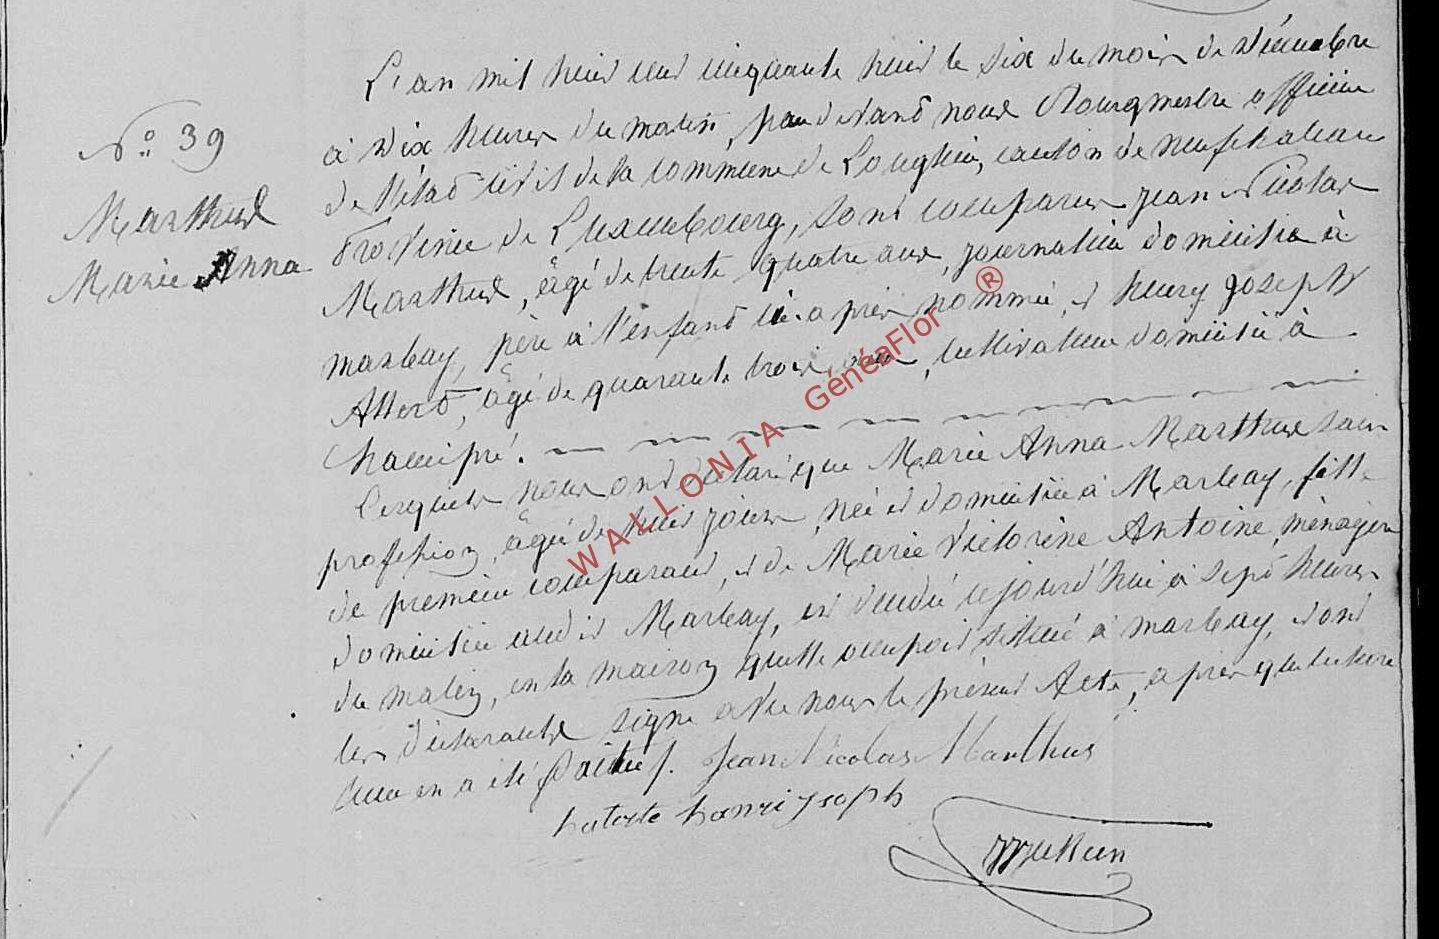 N° 39
Marthus
Marie Anna
L'an mil huit cent cinquante huit le six du mois de Décembre
à Dix heures du matin, par devant nous Bourgmestre officier
de l'état civil de la commune de Longlier, canton de neufchateau
Province de Luxembourg, sont comparus jean Nicolas
Marthus, âgé de trente quatre ans, journalier domicilié à
marbay, père à l'enfant ci-après nommée, et henry joseph
âgé de quarante trois ans, cultivateur domicilié à
hamipré.
Lesquels nous ont déclaré que Marie Anna Marthus sans
profession, âgée de huit jours, née et domiciliée à Marbay, fille
de premier comparant, et de Marie Victorine Antoine, ménagère
domiciliée audit Marbay, est décédée cejourd'hui à sept heures
du matin, en la maison quelle occupoit située à marbay, et ont
les déclarants signé avec nous le présent Acte, après que lecture
leur en a été faite. Jean Nicolas Marthus
henri joseph
WALLONIA GénéaFlor ®